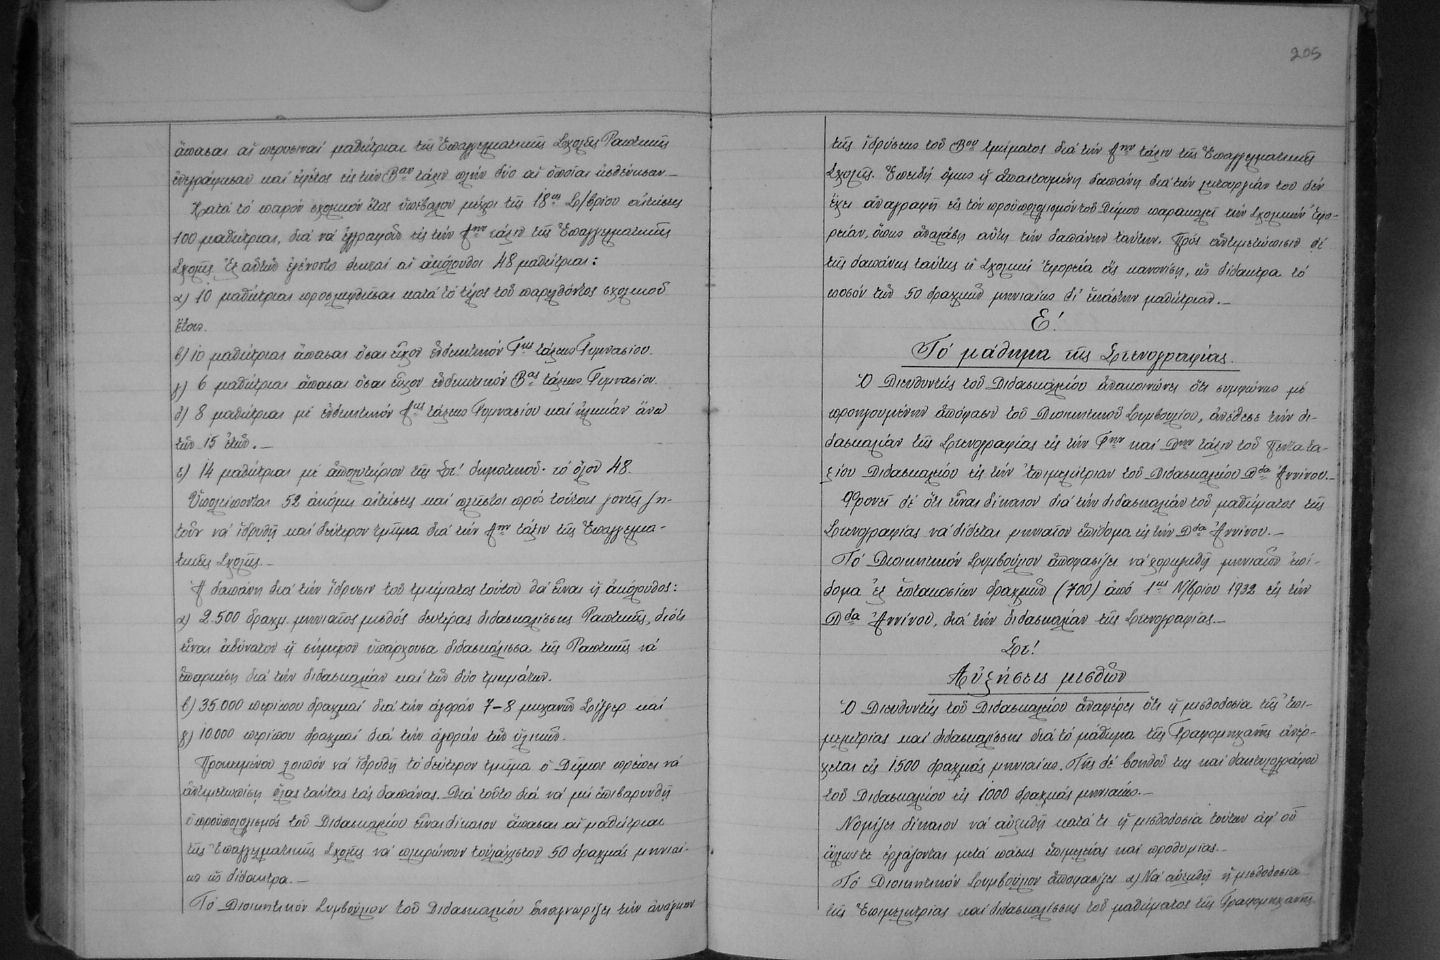 ἅπασαι αἱ περυσιναί μαθήτριαι τῆς Ἐπαγγελματικῆς Σχολῆς Ραπτικῆς
ἐνεγράφησαν καί ἐφέτος εἰς τήν Βαν τάξιν πλήν δύο αἱ ὁποῖαι ἠσθένησαν_
Κατά τό παρόν σχολικόν ἔτος ὑπέβαλον μέχρι τῆς 18ης Σ/βρίου αἰτήσεις
100 μαθήτριαι, διά νά ἐγγραφοῦν εἰς τήν Αην τάξιν τῆς Ἐπαγγελματικῆς
Σχολῆς. Ἐξ αὐτῶν ἐγένοντο δεκταί αἱ ἀκόλουθοι 48 μαθήτριαι:
α) 10 μαθήτριαι προσληφθεῖσαι κατά τό τέλος τοῦ παρελθόντος σχολικοῦ
ἔτους.
β) 10 μαθήτριαι ἅπασαι ὅσαι εἶχον ἐνδεικτικόν Γης τάξεως Γυμνασίου.
γ) 6 μαθήτριαι ἅπασαι ὅσαι εἶχον ἐνδεικτικόν Βας τάξεως Γυμνασίου.
δ) 8 μαθήτριαι μέ ἐνδεικτικόν Αης τάξεως Γυμνασίου καί ἡλικίαν ἄνω
τῶν 15 ἐτῶν._
ε) 14 μαθήτριαι μέ ἀπολυτήριον τῆς Στ! δημοτικοῦ· τό ὅλον 48
Ὑπολείπονται 52 ἀκόμη αἰτήσεις καί πλεῖστοι πρός τούτοις γονεῖς ζη-
τοῦν νά ἱδρυθῇ καί δεύτερον τμῆμα διά τήν Αην τάξιν τῆς Ἐπαγγελμα-
τικῆς Σχολῆς._
Ἡ δαπάνη διά τήν ἵδρυσιν τοῦ τμήματος τούτου θά εἶναι ἡ ἀκόλουθος:
α) 2.500 δραχμ. μηνιαῖος μισθός δευτέρας διδασκαλίσσης Ραπτικῆς, διότι
εἶναι ἀδύνατον ἡ σήμερον ὑπάρχουσα διδασκάλισσα τῆς Ραπτικῆς νά
ἐπαρκέσῃ διά τήν διδασκαλίαν καί τῶν δύο τμημάτων.
β) 35.000 περίπου δραχμαί διά τήν ἀγοράν 7-8 μηχανῶν Σίγγερ καί
γ) 10000 περίπου δραχμαί διά τήν ἀγοράν τῶν ὑλικῶν.
Προκειμένου λοιπόν νά ἱδρυθῇ τό δεύτερον τμῆμα ὁ Δῆμος πρέπει νά
ἀντιμετωπίσῃ ὅλας ταύτας τάς δαπάνας. Διά τοῦτο διά νά μή ἐπιβαρυνθῇ
ὁ προϋπολογισμός τοῦ Διδασκαλείου εἶναι δίκαιον ἅπασαι αἱ μαθήτριαι
τῆς Ἐπαγγελματικῆς Σχολῆς νά πληρώνουν τοὐλάχιστον 50 δραχμάς μηνιαί-
ως ὡς δίδακτρα._
Τό Διοικητικόν Συμβούλιον τοῦ Διδασκαλείου ἀναγνωρίζει τήν ἀνάγκην
205
τῆς ἱδρύσεως τοῦ Βου τμήματος διά τήν Αην τάξιν τῆς Ἐπαγγελματικῆς
Σχολῆς. Ἐπειδή ὅμως ἡ ἀπαιτουμένη δαπάνη διά τήν λειτουργίαν του δέν
ἔχει ἀναγραφῇ εἰς τόν προϋπολογισμόν τοῦ Δήμου παρακαλεῖ τήν Σχολικήν Ἐφο-
ρείαν, ὅπως ἀναλάβῃ αὕτη τήν δαπάνην ταύτην. Πρός ἀντιμετώπισιν δέ
τῆς δαπάνης ταύτης ἡ Σχολική Ἐφορεία ἄς κανονίσῃ, ὡς δίδακτρα τό
ποσόν τῶν 50 δραχμῶν μηνιαίως δι' ἑκάστην μαθήτριαν._
Ε!
Τό μάθημα τῆς Στενογραφίας.
Ὁ Διευθυντής τοῦ Διδασκαλείου ἀνακοινώνει ὅτι συμφώνως μέ
προηγουμένην ἀπόφασιν τοῦ Διοικητικοῦ Συμβουλίου, ἀνέθεσε τήν δι-
δασκαλίαν τῆς Στενογραφίας εἰς τήν Γην καί Δην τάξιν τοῦ Πεντατα-
ξίου Διδασκαλείου εἰς τήν ἐπιμελήτριαν τοῦ Διδασκαλείου Δδα Ἀννίνου._
Φρονεῖ δέ ὅτι εἶναι δίκαιον διά τήν διδασκαλίαν τοῦ μαθήματος τῆς
Στενογραφίας νά δίδεται μηνιαῖον ἐπίδομα εἰς τήν Δδα Ἀννίνου._
Τό Διοικητικόν Συμβούλιον ἀποφασίζει νά χορηγηθῇ μηνιαῖον ἐπί-
δομα ἐξ ἑπτακοσίων δραχμῶν (700) ἀπό 1ης Ν/βρίου 1932 εἰς τήν
Δδα Ἀννίνου, διά τήν διδασκαλίαν τῆς Στενογραφίας._
Στ!
Αὐξήσεις μισθῶν
Ὁ Διευθυντής τοῦ Διδασκαλείου ἀναφέρει ὅτι ἡ μισθοδοσία τῆς ἐπι-
μελητρίας καί διδασκαλίσσης διά τό μάθημα τῆς Γραφομηχανῆς ἀνέρ-
χεται εἰς 1500 δραχμάς μηνιαίως. Τῆς δέ βοηθοῦ της καί δακτυλογράφου
τοῦ Διδασκαλείου εἰς 1000 δραχμάς μηνιαίως._
Νομίζει δίκαιον νά αὐξηθῇ κατά τι ἡ μισθοδοσία τούτων ἀφ' οὗ
ἄλλωστε ἐργάζονται μετά πάσης ἐπιμελείας καί προθυμίας._
Τό Διοικητικόν Συμβούλιον ἀποφασίζει α) Νά αὐξηθῇ ἡ μισθοδοσία
τῆς Ἐπιμελητρίας καί διδασκαλίσσης τοῦ μαθήματος τῆς Γραφομηχανῆς